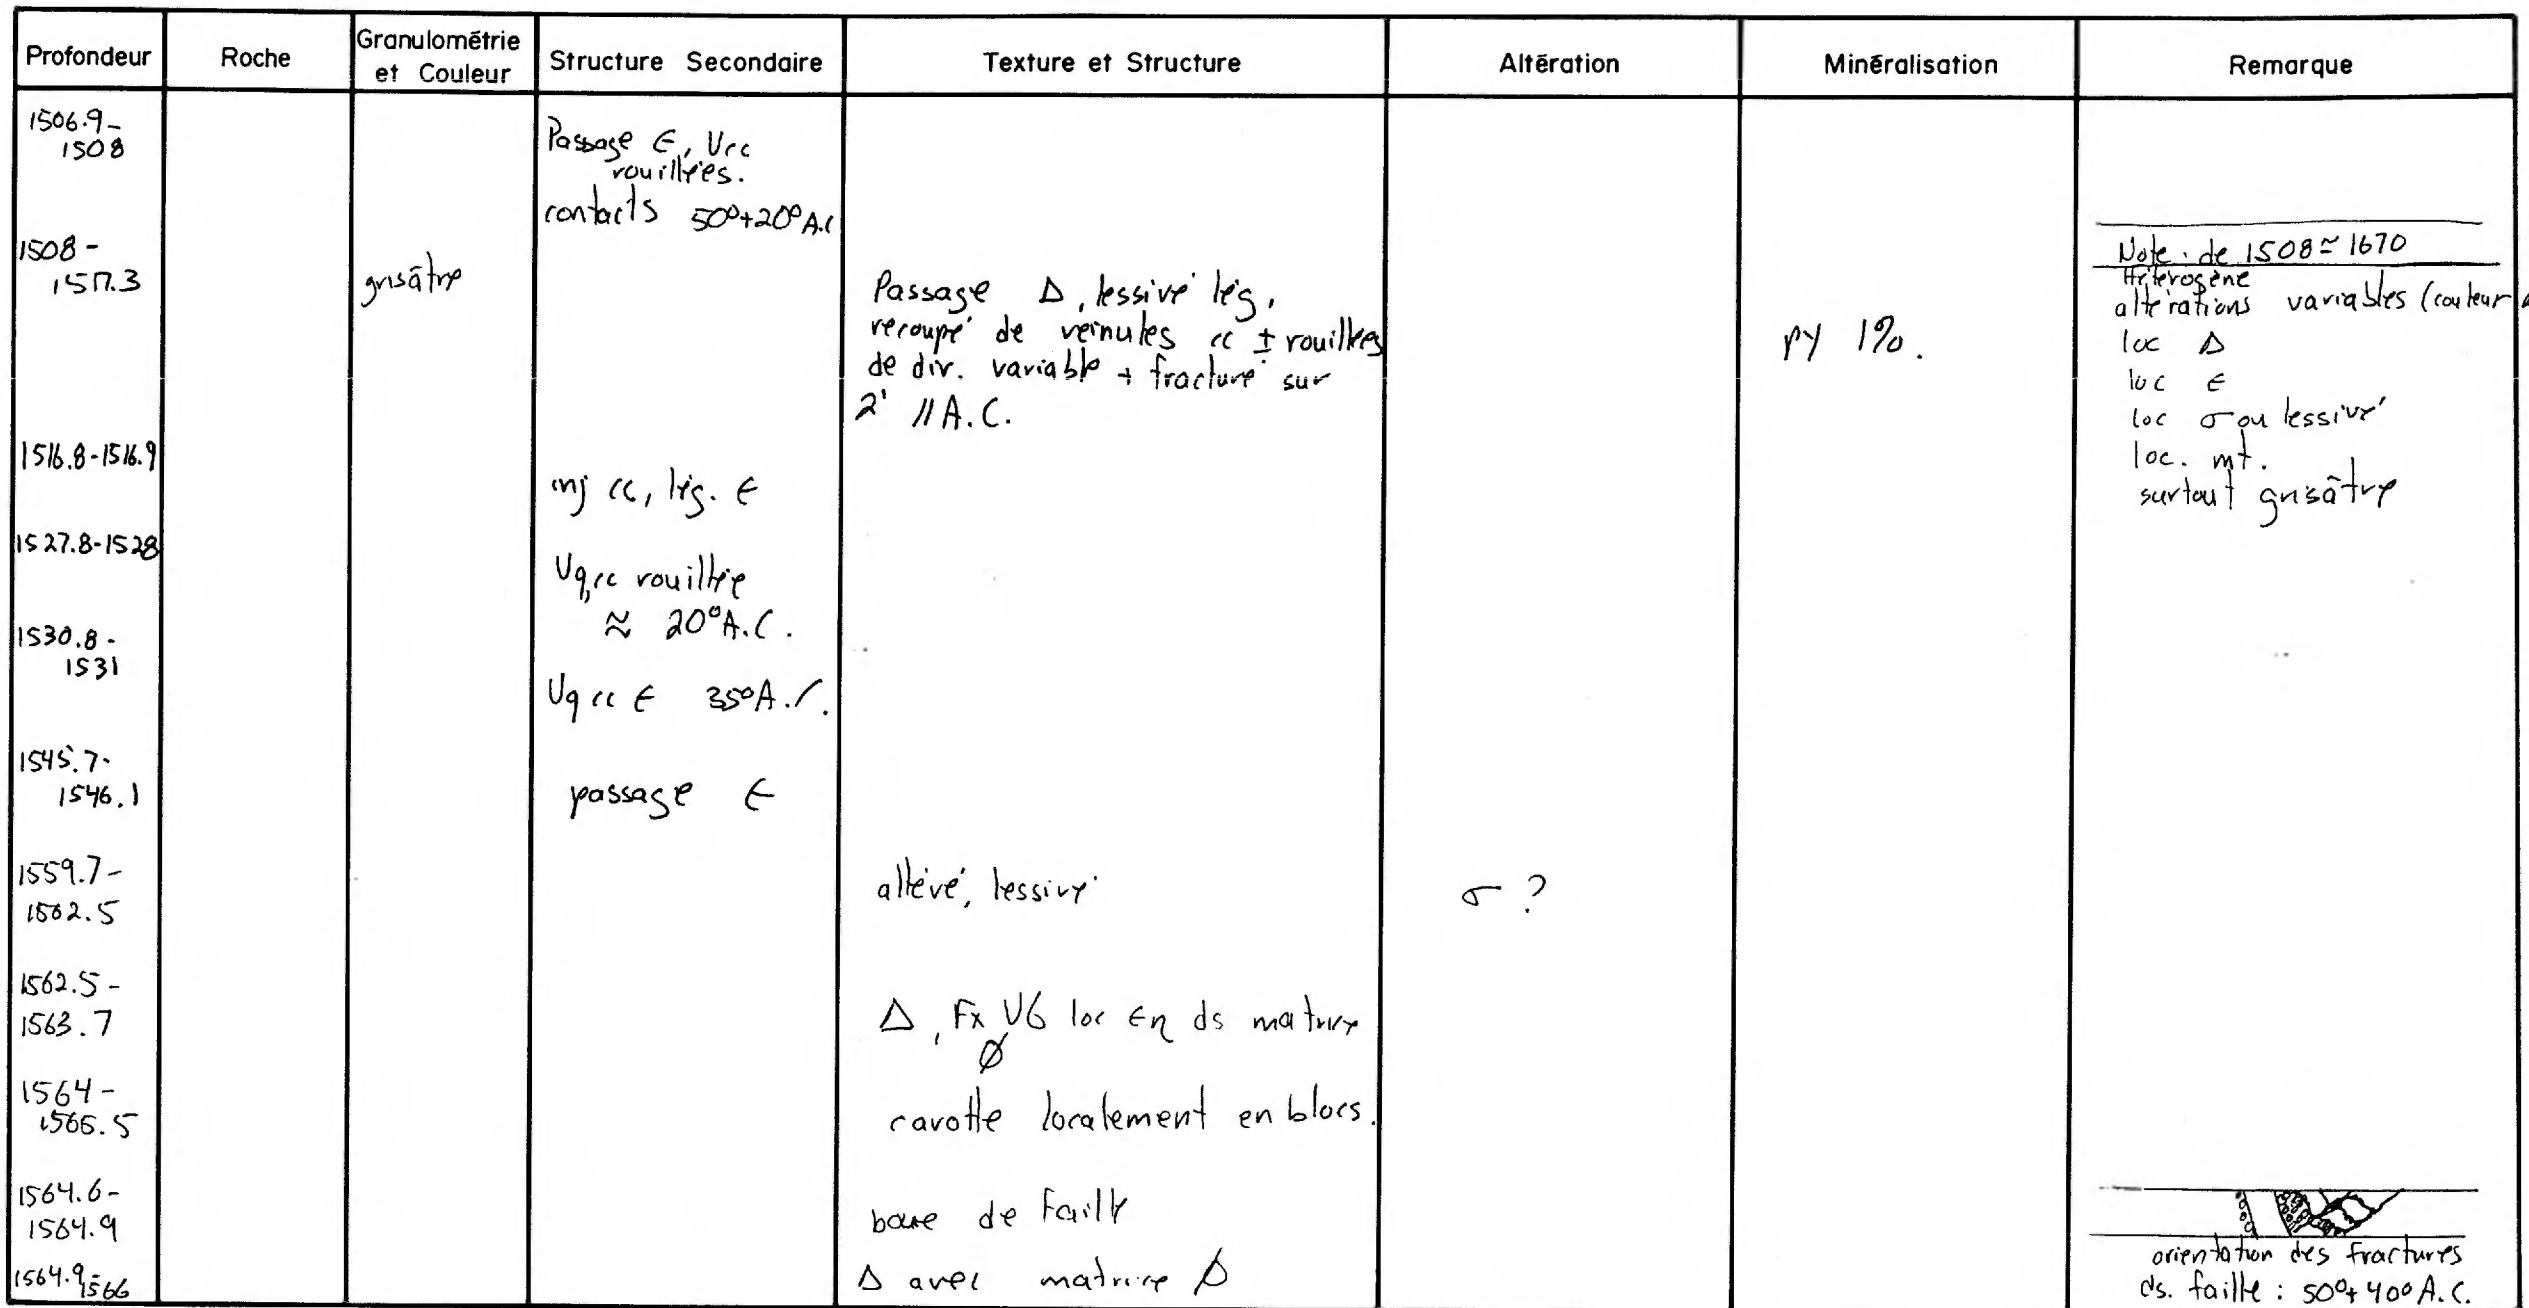 Profondeur
Roche
Granulométrie
et Couleur
Structure Secondaire
Texture et Structure
Altération
Minéralisation
Remarque
1506.9-
1508
Passage ∈, Vcc
rouillées.
contacts 50°+20° A.C
1508-
grisâtre
Passage Δ, lessivé lég.
recoupé de veinules cc ± rouillées
de dir. variable + fracturé sur
2' // A.C.
py 1%.
Note: de 1508 ≃ 1670
Hétérogène
altérations variables (couleur
loc Δ
loc ∈
loc σ ou lessivé
loc. mt.
surtout grisâtre
1516.8-1516.9
inj cc, lég. ∈
1527.8-1528
Vq,cc rouillée
≈ 20° A.C.
1530.8-
1531
Vq cc ∈ 35° A.C.
1545.7-
1546.1
passage ∈
1559.7-
1562.5
altéré, lessivé
σ ?
1562.5-
1563.7
Δ, Fx V6 loc ∈η ds matrice
Ø
1564-
1565.5
carotte localement en blocs.
1564.6-
1564.9
boue de Faille
1564.9-1566
Δ avec matrice Ø
orientation des fractures
ds. faille : 50°+40° A.C.